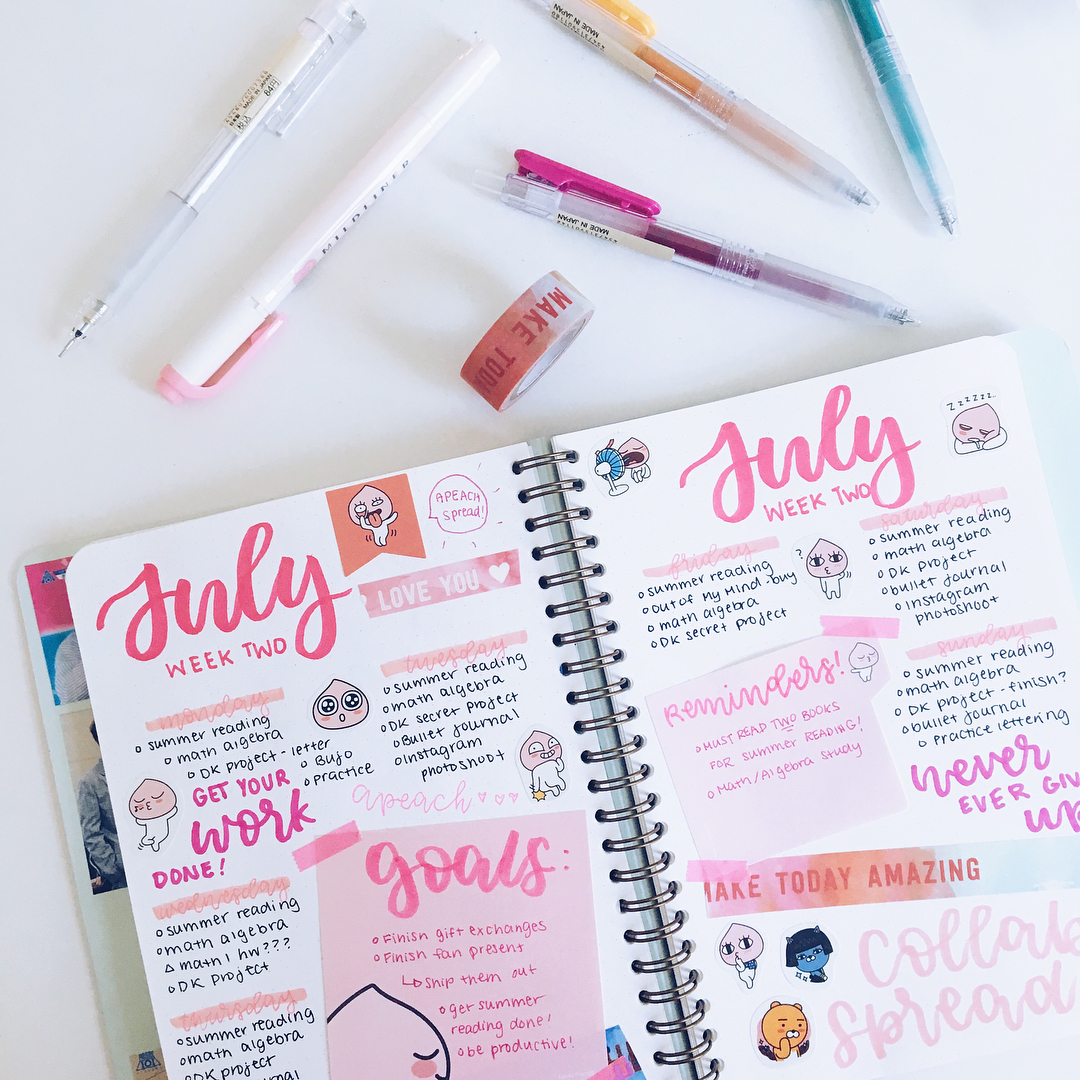 MADE IN JAPAN
84円
MILDLINER
MADE IN JAPAN
MADE IN JAPAN
MAKE TOD
July
WEEK TWO
APEACH
spread!
LOVE YOU
monday
o summer reading
o math algebra
o DK project - letter
o Bujo
o practice
GET YOUR
work
DONE!
tuesday
o summer reading
o math algebra
o DK secret project
o Bullet journal
o Instagram
photoshoot
apeach
wednesday
o summer reading
o math algebra
Δ math 1 hw???
o DK project
thursday
o summer reading
o math algebra
o DK project
goals:
o Finish gift exchanges
o Finish fan present
↳ Ship them out
o get summer
reading done!
o be productive!
July
WEEK TWO
Zzzzzz..
friday
o summer reading
o out of my mind - buy
o math algebra
o DK secret project
?
saturday
o summer reading
o math algebra
o DK project
o bullet journal
o Instagram
photoshoot
Reminders!
o MUST READ TWO BOOKS
FOR summer READING!
o Math/Algebra study
sunday
o summer reading
o math algebra
o DK project - finish?
o bullet journal
o practice lettering
never
EVER GIV
up
MAKE TODAY AMAZING
collab
spread